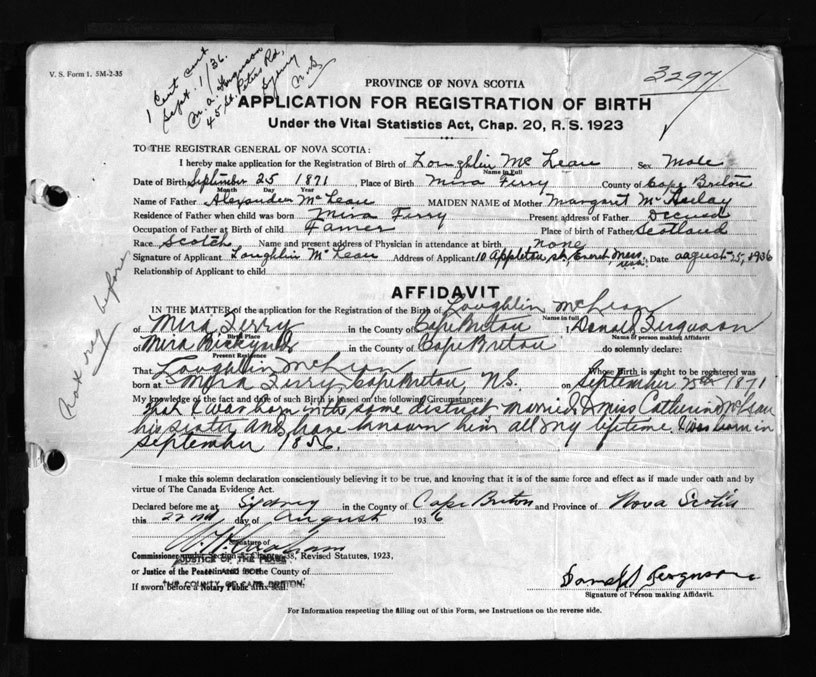 V. S. Form 1. 5M-2-35
1 Cent cert
Sept. 1/36.
M. A. Ferguson
45 St. Peters Rd,
Sydney
N.S.
3297
PROVINCE OF NOVA SCOTIA
APPLICATION FOR REGISTRATION OF BIRTH
Under the Vital Statistics Act, Chap. 20, R. S. 1923
TO THE REGISTRAR GENERAL OF NOVA SCOTIA:
I hereby make application for the Registration of Birth of Loughlin Mc Lean Sex Male
Name in Full
Date of Birth September 25 1871 Place of Birth Mira Ferry County of Cape Breton
Month Day Year
Name of Father Alexander McLean MAIDEN NAME of Mother Margaret
Residence of Father when child was born Mira Ferry Present address of Father
Occupation of Father at Birth of child Famer Place of birth of Father Scotland
Race Scotch Name and present address of Physician in attendance at birth none
Signature of Applicant Loughlin McLean Address of Applicant 10 Appleton st, Mass Date august 25, 1936
Relationship of Applicant to child
before
AFFIDAVIT
IN THE MATTER of the application for the Registration of the Birth of Loughlin McLean
Name in full
of Mira Ferry in the County of Cape Breton, I Donald Ferguson
Birth Place Name of person making Affidavit
of Mira in the County of Cape Breton do solemnly declare:
Present Residence
That Loughlin McLean Whose Birth is sought to be registered was
born at Mira Ferry, Cape Breton, N.S. on September 25th 1871
My knowledge of the fact and date of such Birth is based on the following Circumstances:
that I was born in the same district married Miss Catherine McLean
his sister and have known him all my lifetime. I was born in
September 1856.
I make this solemn declaration conscientiously believing it to be true, and knowing that it is of the same force and effect as if made under oath and by
virtue of The Canada Evidence Act.
Declared before me at Sydney in the County of Cape Breton and Province of Nova Scotia
this 22nd day of August 1936
Signature of
Commissioner under Section Chapter 38, Revised Statutes, 1923,
JUSTICE OF THE PEACE
or Justice of the Peace in and for the County of
THE COUNTY OF CAPE BRETON
If sworn before a Notary Public affix seal.
Donald Ferguson
Signature of Person making Affidavit.
For Information respecting the filling out of this Form, see Instructions on the reverse side.